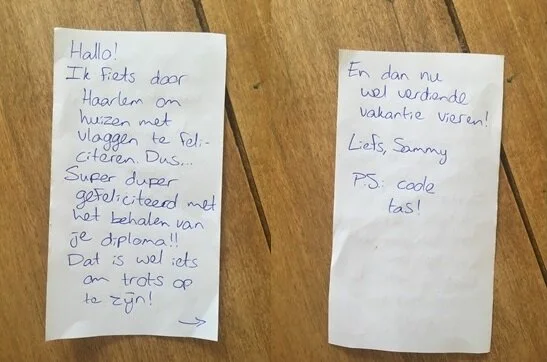 Hallo!
Ik fiets door
Haarlem om
huizen met
vlaggen te feli-
citeren. Dus...
Super duper
gefeliciteerd met
het behalen van
je diploma!!
Dat is wel iets
om trots op
te zijn!
→
En dan nu
wel verdiende
vakantie vieren!
Liefs, Sammy
P.S.: code
tas!